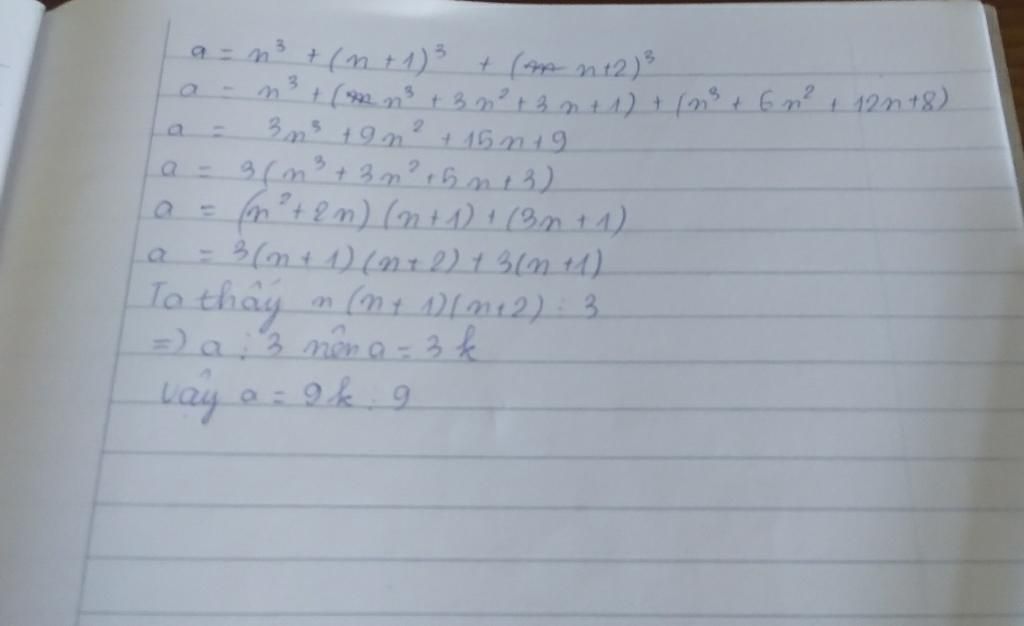 a = n³ + (n+1)³ + (n+2)³
a = n³ + (n³ + 3n² + 3n + 1) + (n³ + 6n² + 12n+8)
a = 3n³ + 9n² + 15n + 9
a = 3(n³ + 3n² + 5n + 3)
a = (n² + 2n)(n+1) + (3n + 1)
a = 3(n + 1)(n+2) + 3(n+1)
Ta thấy n(n + 1)(n+2) ⋮ 3
=) a ⋮ 3 nên a = 3k
Vậy a = 9k ⋮ 9